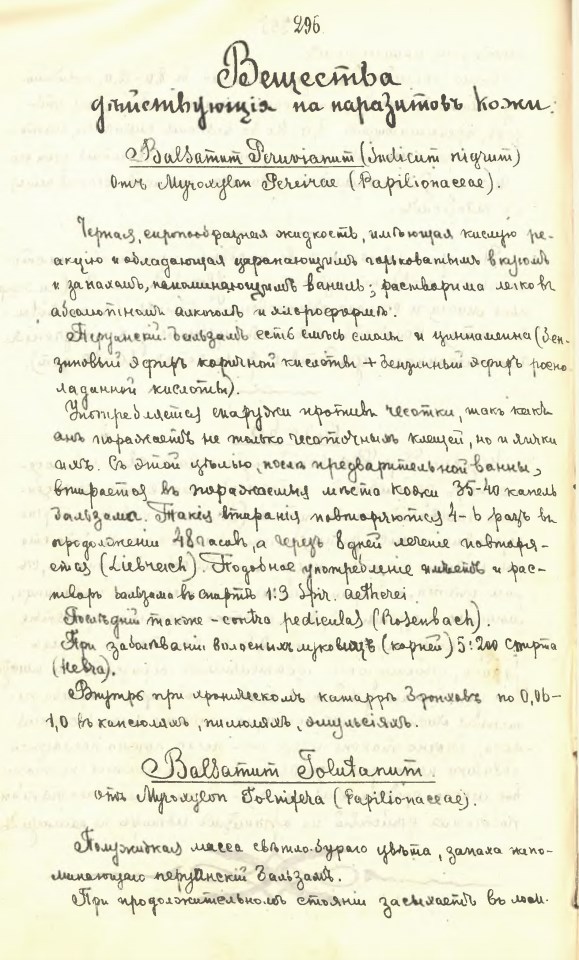 296
Вещества
дѣйствующія на паразитовъ кожи.
Balsamum Peruvianum (Indicum nigrum)
отъ Myroxylon Pereirae (Papilionaceae).
Черная, сиропообразная жидкость, имѣющая кислую ре-
акцію и обладающая царапающимъ горьковатымъ вкусомъ
и запахомъ, напоминающимъ ваниль; растворима легко въ
абсолютномъ алкоголѣ и хлороформѣ.
Перуанскій бальзамъ есть смѣсь смолы и циннамеина (Бен-
зиновый эфиръ коричной кислоты + бензинный эфиръ росно
ладанной кислоты).
Употребляется снаружи противъ чесотки, такъ какъ
онъ поражаетъ не только чесоточныхъ клещей, но и яички
ихъ. Съ этой цѣлью, послѣ предварительной ванны,
втирается въ пораженныя мѣста кожи 35-40 капель
бальзама. Такія втиранія повторяются 4-6 разъ въ
продолженіи 48 часовъ, а черезъ 8 дней леченіе повторя-
ется (Liebreich). Подобное употребленіе имѣетъ и рас-
творъ бальзама въ спиртѣ 1:3 Spir. aetherei.
Послѣдній также - contra pediculos (Rosenbach).
При заболѣваніи волосныхъ луковицъ (корней) 5:200 спирта
(Hebra).
Внутрь при хроническомъ катаррѣ бронховъ по 0,06-
1,0 въ капсюляхъ, пилюляхъ, эмульсіяхъ.
Balsamum Tolutanum.
отъ Myroxylon Tolnifera (Papilionaceae).
Полужидкая масса свѣтло-бураго цвѣта, запаха напо-
минающаго перуанскій бальзамъ.
При продолжительномъ стояніи засыхаетъ въ